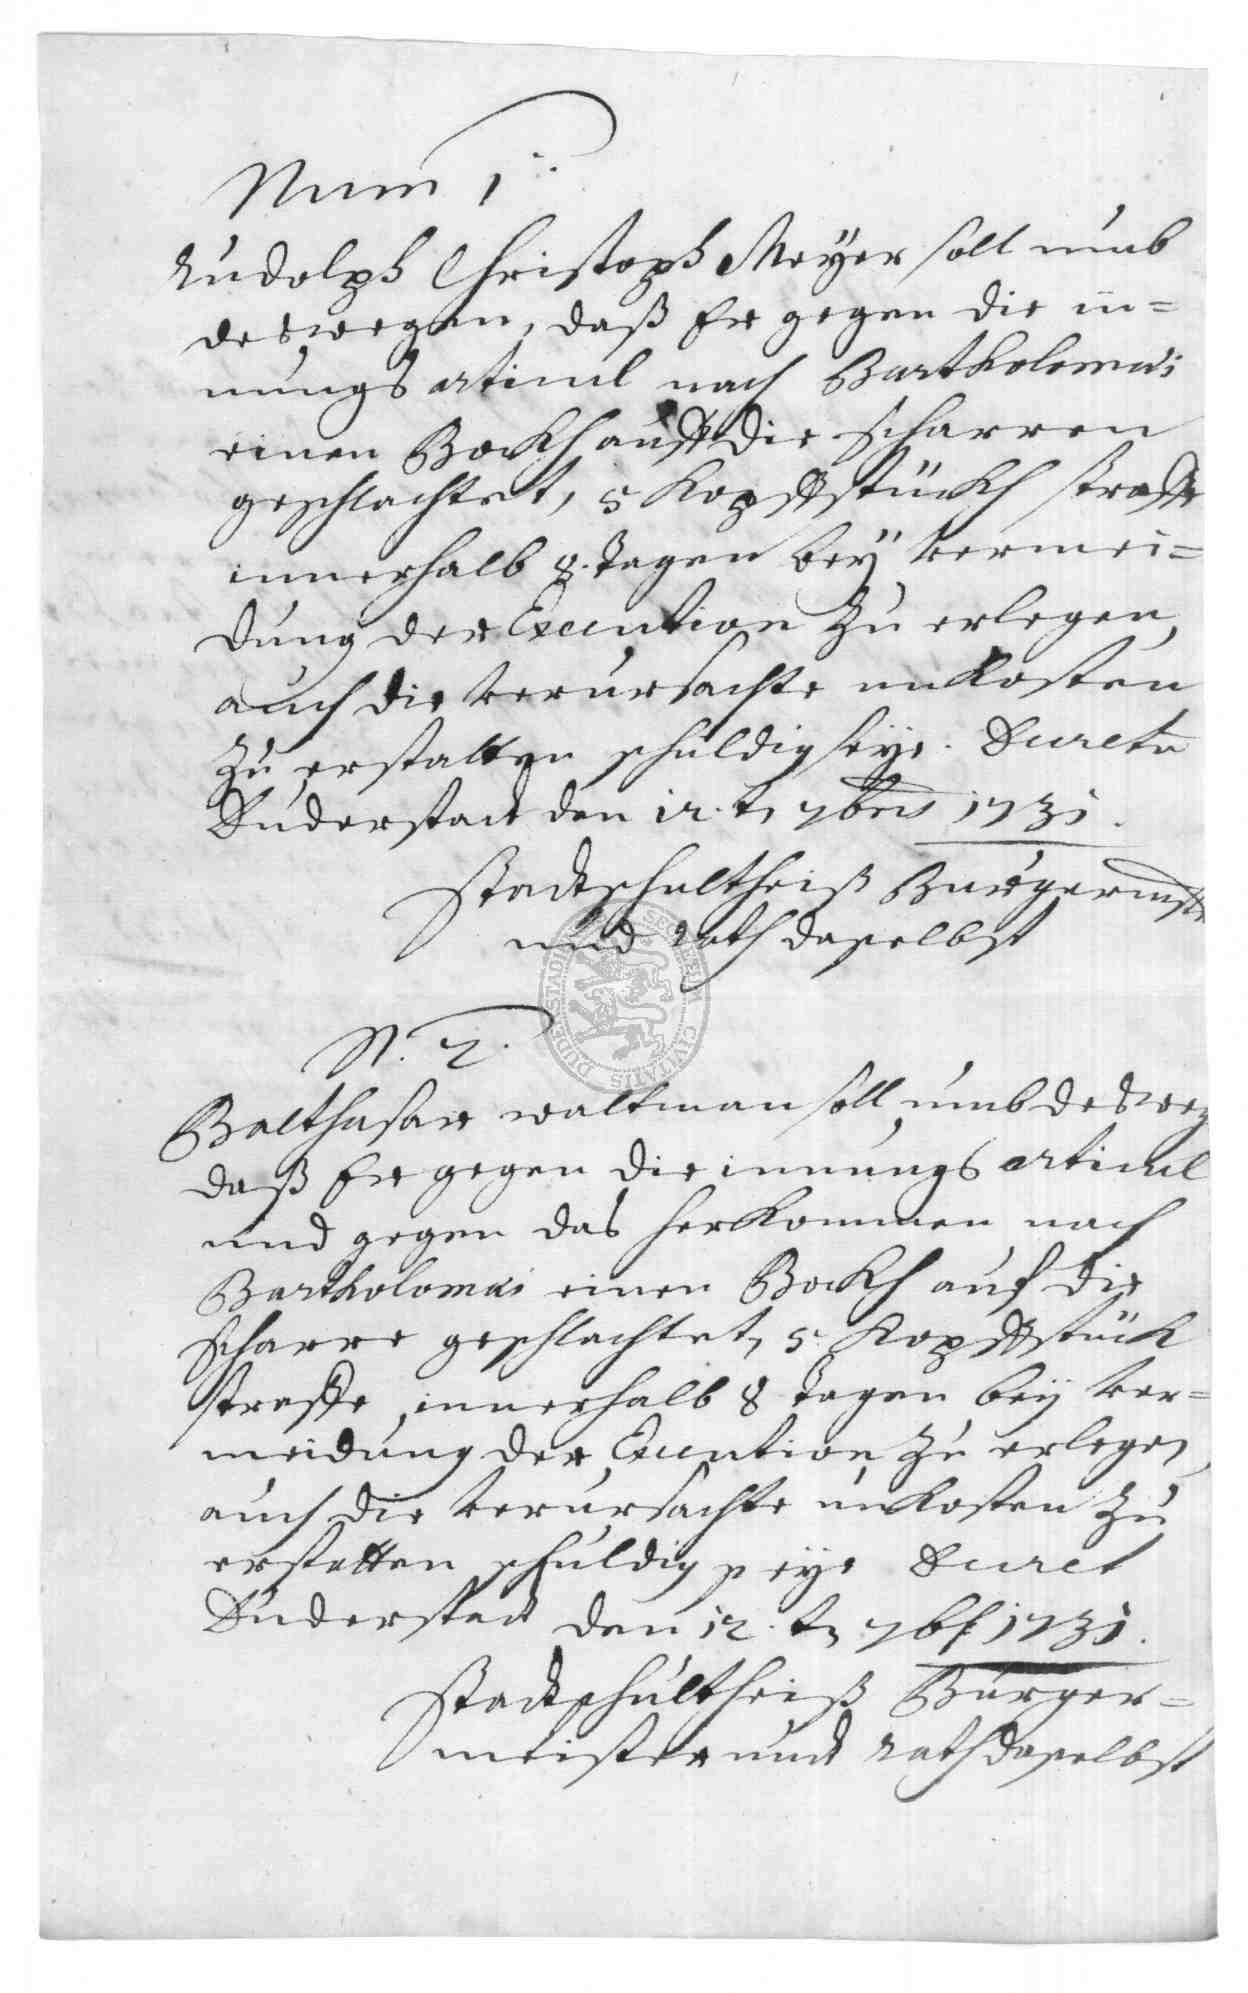 Num 1.
Rudolph Christoph Meÿer soll umb
deswegen, daß Er gegen die in=
nungs articul nach Bartholomæi
einen Bockh auff die scharren
geschlachtet, 5 Kopffstückh straffe
innerhalb 8. tagen beÿ vermei=
dung der Execution zu erlegen,
auch die verursachte unkosten
zu erstatten schuldig seÿe. Decretu
Duderstadt den 12. t. 7bris 1731.
Stadtschultheiß Burgermstr
und Rath daselbst
SECRETUM CIVITATIS DUDERSTADIENSIS
N. 2.
Balthasar waltman soll umb desweg
daß Er gegen die innungs articul
und gegen das herkommen nach
Bartholomæi einen Bockh auf die
scharre geschlachtet, 5. Kopffstück
straffe, innerhalb 8 tagen beÿ ver=
meidung der Execution zu erlegen,
auch die verursachte unkosten zu
erstatten schuldig seÿe Decret
Duderstadt den 12. t. 7br 1731.
Stadtschultheiß Burger=
meister undt Rath daselbst